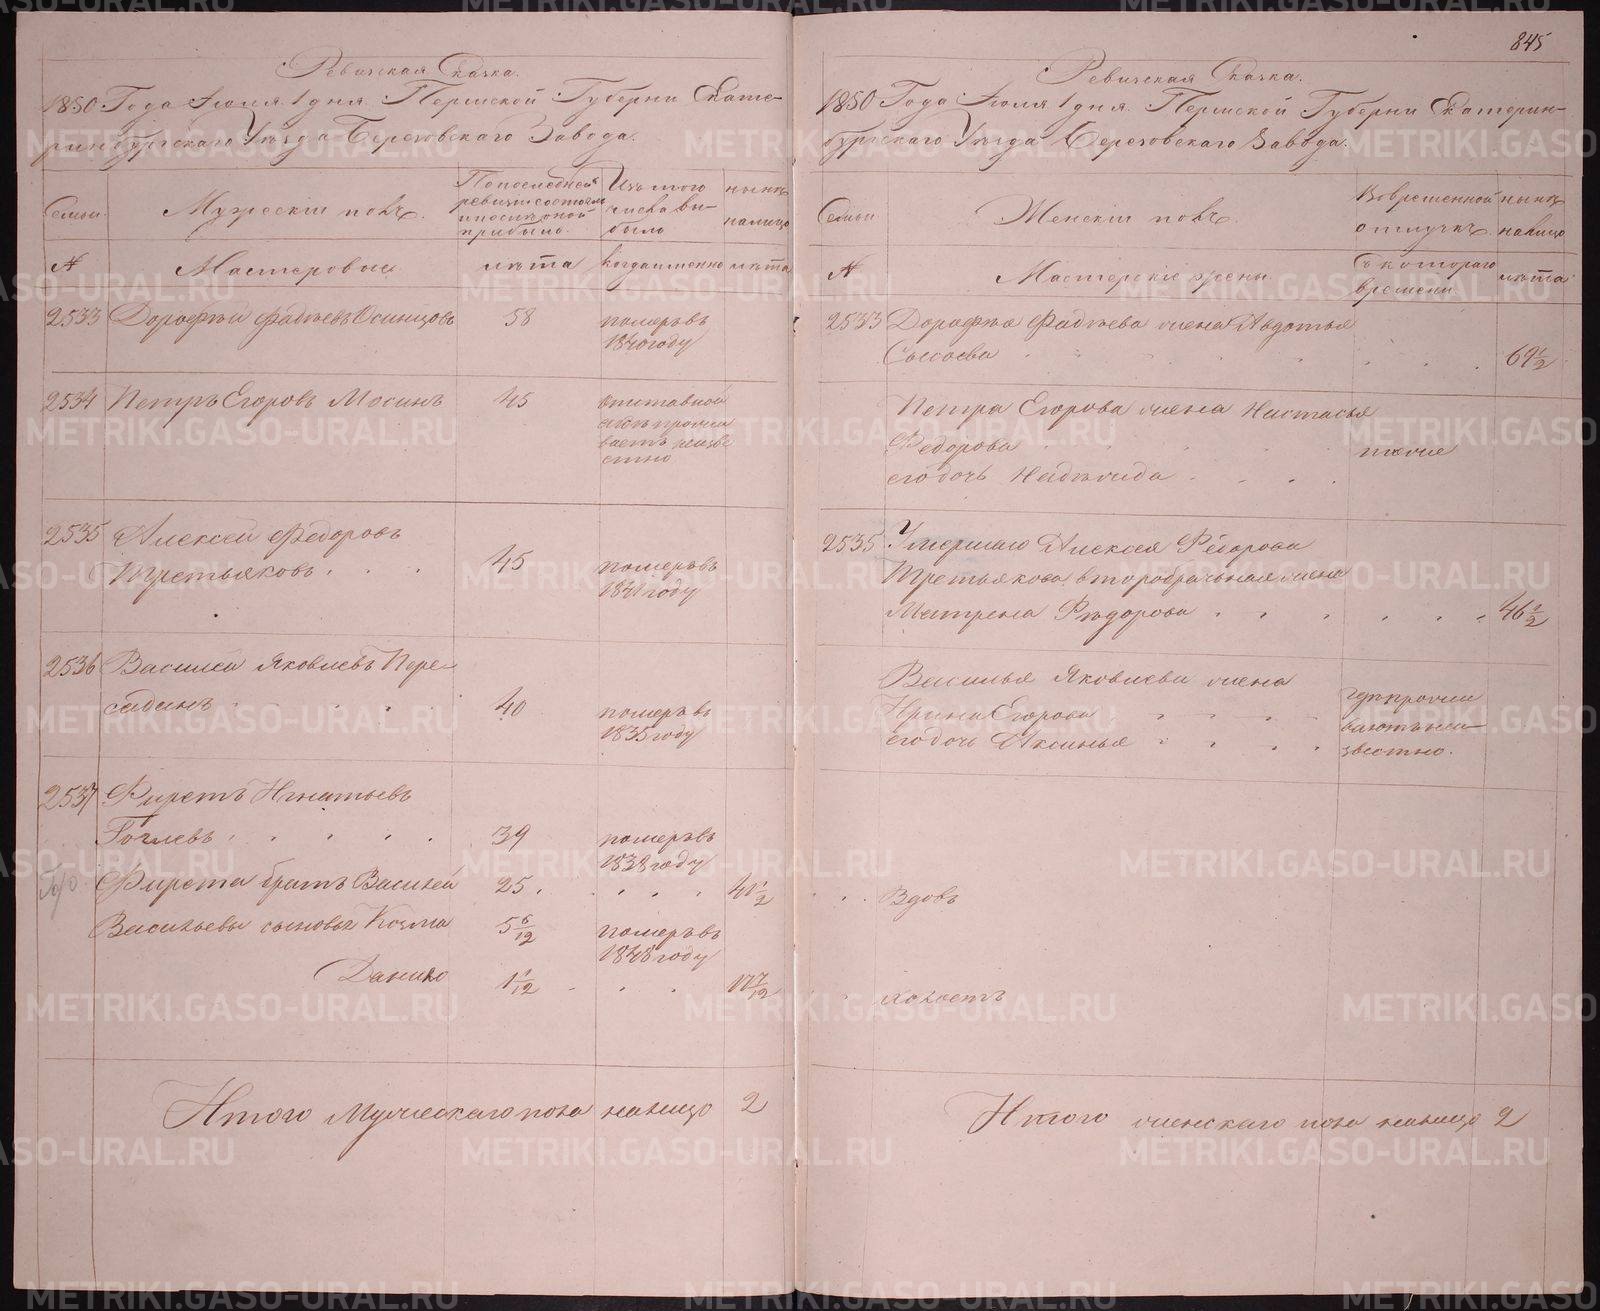 Ревизская Сказка.
1850 Года Июля 1 дня. Пермской Губерни Екате-
ринбургскаго Уезда Березовскаго Завода.
Семьи.
Мужескій полъ.
По последней
ревизіи состояло
и после оной
прибыло.
Изъ того
числа вы-
было
нынѣ
налицо
№
Мастеровые
лѣта
когда именно
лѣта
2533
Дорофѣй Фадѣевъ Осинцовъ
58
померъ въ
1840 году
2534
Петръ Егоровъ Мосинъ
45
отставной
гдѣ прожи
ваетъ неизве
стно
2535
Алексей Федоровъ
Третьяковъ
45
померъ въ
1841 году
2536
Василей Яковлевъ Пере-
садинъ
40
померъ въ
1835 году
2537
Фирстъ Игнатьевъ
39
померъ въ
1838 году
Фирста братъ Василей
25
41 1/2
Васильевы сыновья Козма
5 6/12
померъ въ
1848 году
Данило
1 1/12
17 7/12
Итого Мужескаго пола налицо 2
845
Ревизская Сказка.
1850 Года Июля 1 дня. Пермской Губерни Екатерин-
бургскаго Уезда Березовскаго Завода.
Семьи
Женскій полъ.
Во временной
отлучкѣ
нынѣ
налицо
№
Мастерскіе жены
съ котораго
времени
лѣта
2533
Дорофѣя Фадѣева жена Авдотья
Сысоева
69 1/2
Петра Егорова жена Настасья
Федорова
тоже
его дочь Надежида
2535
Умершаго Алексея Федорова
Третьякова второбрачьная жена
Матрена Фѣдорова
46 1/2
Василья Яковлева жена
Ирина Егорова
его дочь Аксинья
гдѣ прожи
ваютъ неи
звестно.
Вдовъ
холостъ
Итого женскаго пола налицо 2
METRIKI.GASO-URAL.RU